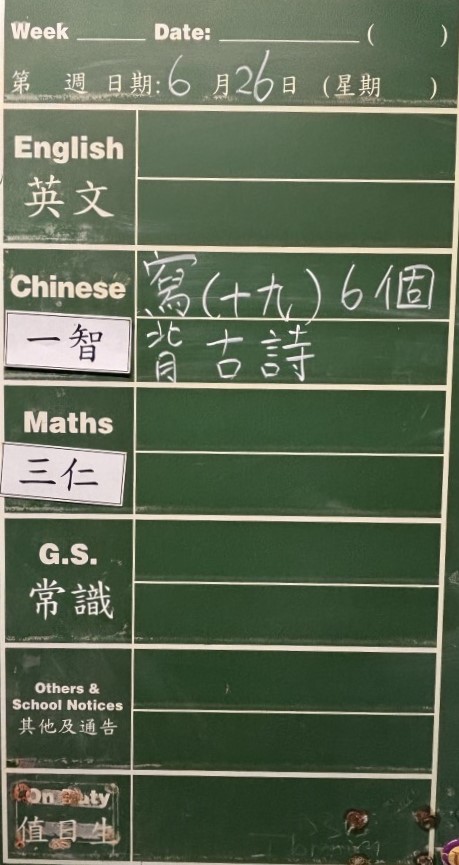 Week ____ Date: ________ ( )
第 週 日期: 6 月 26 日 (星期 )
English
英文
Chinese
寫(十九) 6個
一智
背 古詩
Maths
三仁
G.S.
常識
Others &
School Notices
其他及通告
On Duty
值日生